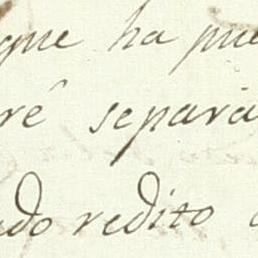 que ha pue
rê separa
ado redito